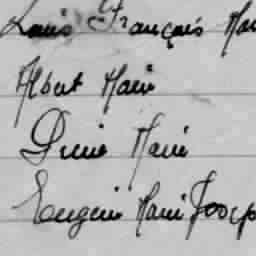 Louis François Mar
Albert Marie
Denis Marie
Eugène Marie Josep